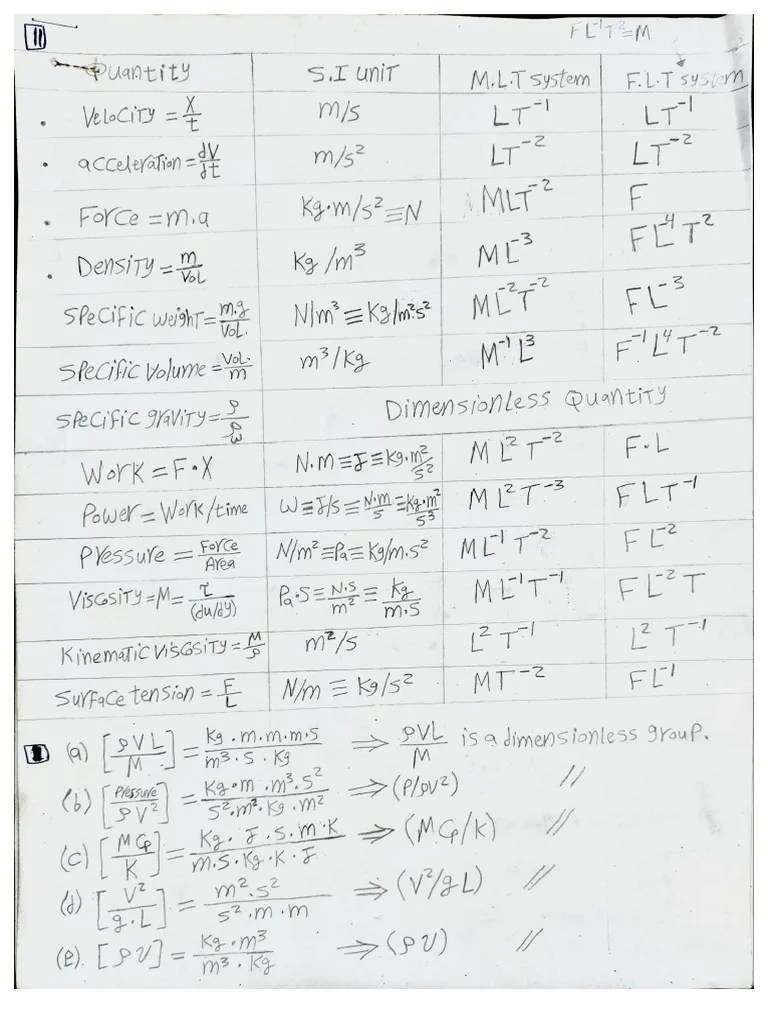 11
FL⁻¹T²=M
Quantity S.I unit M.L.T system F.L.T system
• Velocity = X/t m/s LT⁻¹ LT⁻¹
• acceleration = dV/dt m/s² LT⁻² LT⁻²
• Force = m.a Kg·m/s² ≡ N MLT⁻² F
• Density = m/Vol Kg/m³ ML⁻³ FL⁻⁴T²
Specific weight = m.g/Vol. N/m³ ≡ Kg/m²·s² ML⁻²T⁻² FL⁻³
Specific Volume = Vol./m m³/Kg M⁻¹L³ F⁻¹L⁴T⁻²
Specific gravity = ρ/ρw Dimensionless Quantity
Work = F·X N.M ≡ J ≡ Kg·m²/s² ML²T⁻² F·L
Power = Work/time W ≡ J/s ≡ N·m/s ≡ Kg·m²/s³ ML²T⁻³ FLT⁻¹
Pressure = Force/Area N/m² ≡ Pa ≡ Kg/m.s² ML⁻¹T⁻² FL⁻²
Viscosity = M = τ/(du/dy) Pa·S ≡ N.S/m² ≡ Kg/m.s ML⁻¹T⁻¹ FL⁻²T
Kinematic Viscosity = M/ρ m²/s L²T⁻¹ L²T⁻¹
Surface tension = F/L N/m ≡ Kg/s² MT⁻² FL⁻¹
1 (a) [ρVL/M] = Kg.m.m.m.s/m³.s.Kg ⇒ ρVL/M is a dimensionless group.
(b) [Pressure/ρV²] = Kg·m.m³.s²/s².m².Kg.m² ⇒ (P/ρV²) //
(c) [MCp/K] = Kg.J.s.m.K/m.s.Kg.K.J ⇒ (MCp/K) //
(d) [V²/g.L] = m².s²/s².m.m ⇒ (V²/gL) //
(e). [ρV] = Kg.m³/m³.Kg ⇒ (ρV) //